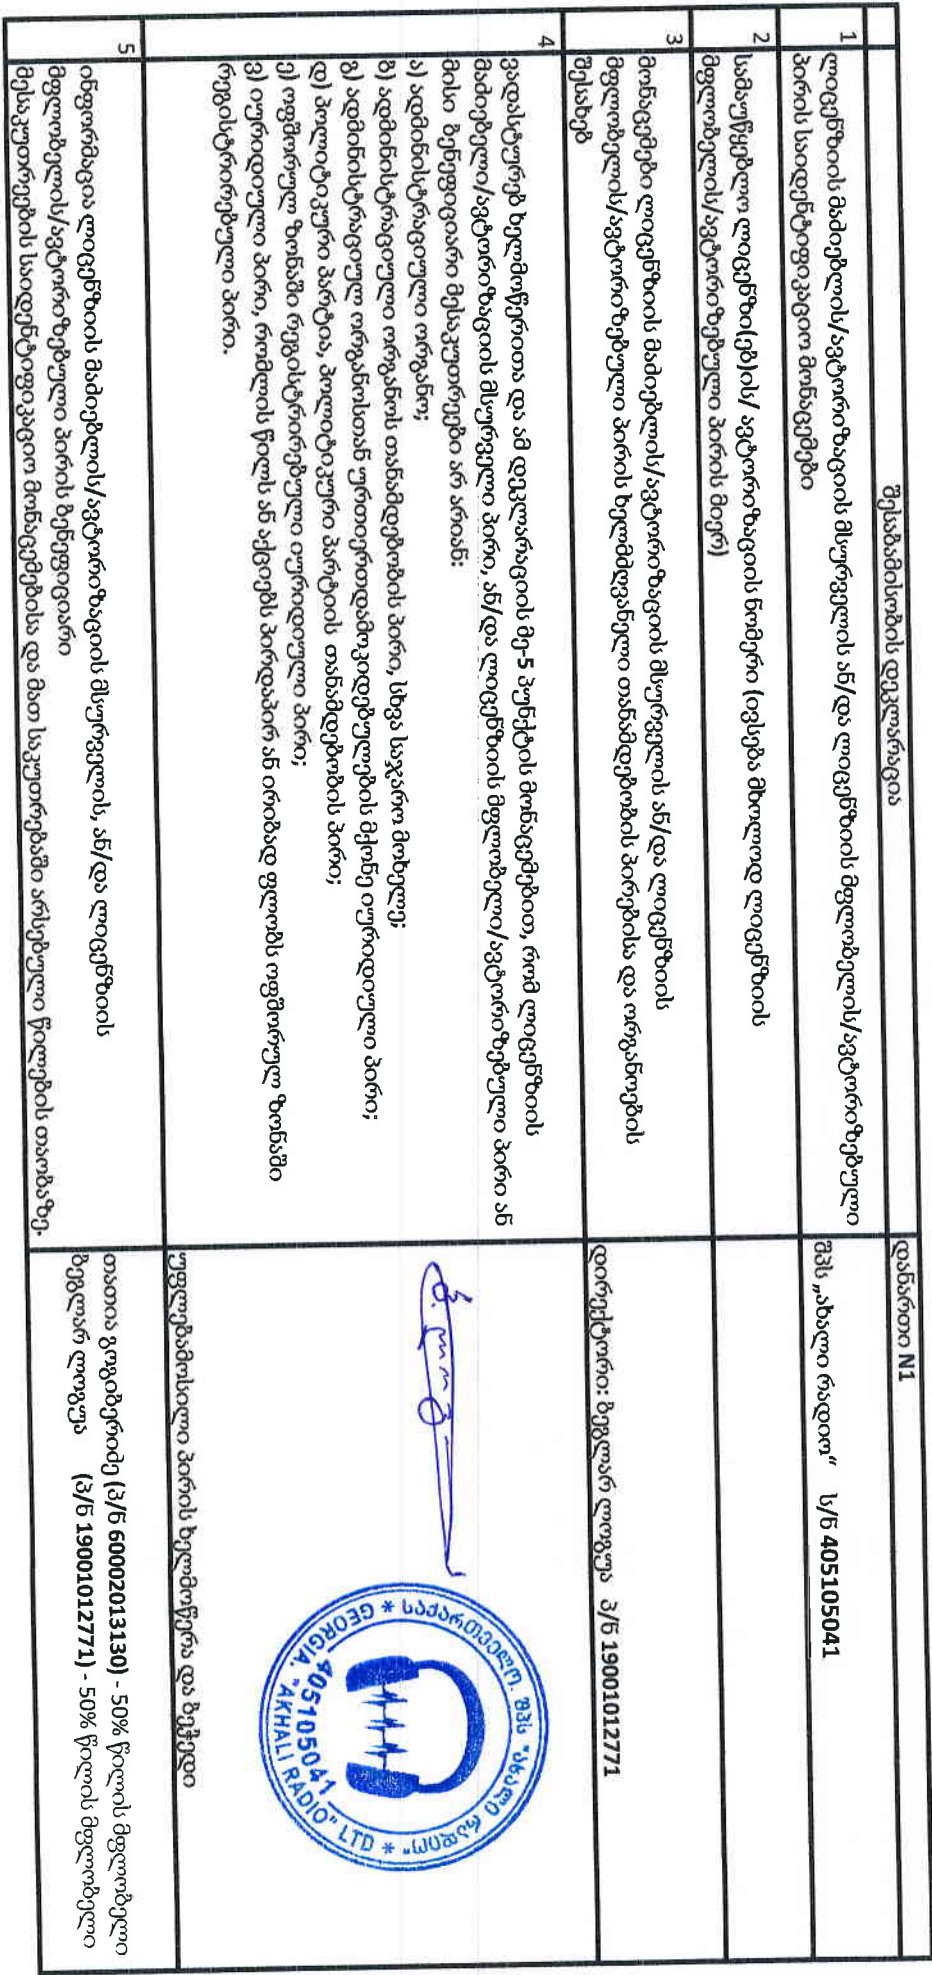 დანართი N1
შესაბამისობის დეკლარაცია
1
ლიცენზიის მაძიებლის/ავტორიზაციის მსურველის ან/და ლიცენზიის მფლობელის/ავტორიზებული
პირის საიდენტიფიკაციო მონაცემები
შპს „ახალი რადიო“ ს/ნ 405105041
2
სამაუწყებლო ლიცენზი(ებ)ის/ ავტორიზაციის ნომერი (ივსება მხოლოდ ლიცენზიის
მფლობელის/ავტორიზებული პირის მიერ)
3
მონაცემები ლიცენზიის მაძიებლის/ავტორიზაციის მსურველის ან/და ლიცენზიის
მფლობელის/ავტორიზებული პირის ხელმძღვანელი თანამდებობის პირებისა და ორგანოების
შესახებ
დირექტორი: ბეგლარ ლოგუა პ/ნ 19001012771
4
ვადასტურებ ხელმოწერითა და ამ დეკლარაციის მე-5 პუნქტის მონაცემებით, რომ ლიცენზიის
მაძიებელი/ავტორიზაციის მსურველი პირი, ან/და ლიცენზიის მფლობელი/ავტორიზებული პირი ან
მისი ბენეფიციარი მესაკუთრეები არ არიან:
ა) ადმინისტრაციული ორგანო;
ბ) ადმინისტრაციული ორგანოს თანამდებობის პირი, სხვა საჯარო მოხელე;
გ) ადმინისტრაციულ ორგანოსთან ურთიერთდამოკიდებულების მქონე იურიდიული პირი;
დ) პოლიტიკური პარტია, პოლიტიკური პარტიის თანამდებობის პირი;
ე) ოფშორულ ზონაში რეგისტრირებული იურიდიული პირი;
ვ) იურიდიული პირი, რომლის წილს ან აქციებს პირდაპირ ან ირიბად ფლობს ოფშორულ ზონაში
რეგისტრირებული პირი.
ბ. ლოგუ
საქართველო. შპს "ახალი რადიო"
* GEORGIA. "AKHALI RADIO" LTD *
405105041
უფლებამოსილი პირის ხელმოწერა და ბეჭედი
5
ინფორმაცია ლიცენზიის მაძიებლის/ავტორიზაციის მსურველის, ან/და ლიცენზიის
მფლობელის/ავტორიზებული პირის ბენეფიციარი
მესაკუთრეების საიდენტიფიკაციო მონაცემებისა და მათ საკუთრებაში არსებული წილების თაობაზე.
თათია გოგიბერიძე (პ/ნ 60002013130) - 50% წილის მფლობელი
ბეგლარ ლოგუა (პ/ნ 19001012771) - 50% წილის მფლობელი